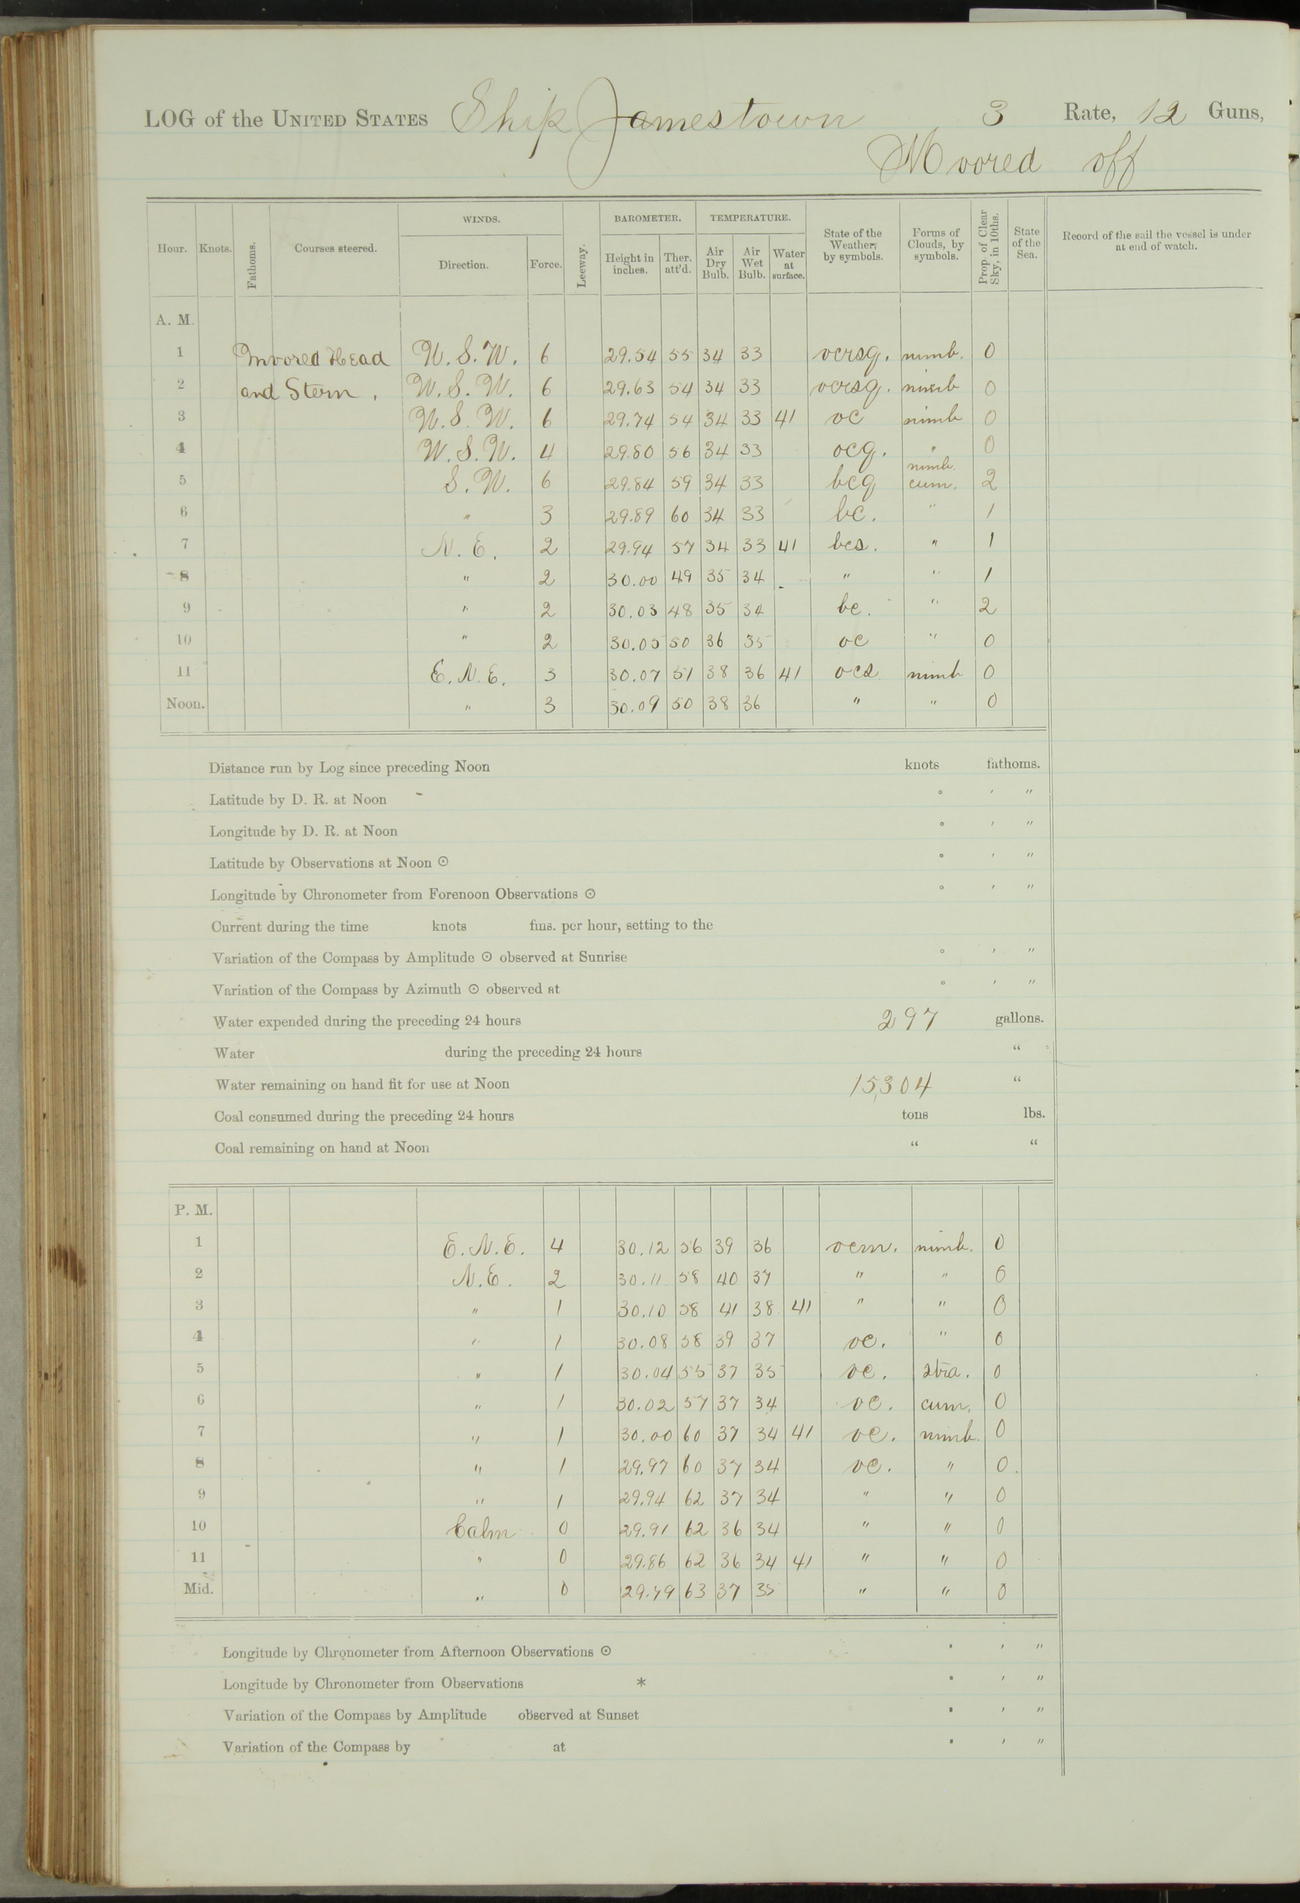 LOG of the UNITED STATES Ship Jamestown 3 Rate, 12 Guns,
Moored off
Hour. Knots. Fathoms. Courses steered. WINDS. Direction. Force. Leeway. BAROMETER. Height in inches. Ther. att'd. TEMPERATURE. Air Dry Bulb. Air Wet Bulb. Water at surface. State of the Weather, by symbols. Forms of Clouds, by symbols. Prop. of Clear Sky, in 10ths. State of the Sea. Record of the sail the vessel is under at end of watch.
A. M.
1 Moored Head W. S. W. 6 29.54 55 34 33 ocrsq. nimb. 0
2 and Stern. W. S. W. 6 29.63 54 34 33 ocrsq. nimb 0
3 W. S. W. 6 29.74 54 34 33 41 oc nimb 0
4 W. S. W. 4 29.80 56 34 33 ocq. " 0
5 S. W. 6 29.84 59 34 33 bcq nimb. cum. 2
6 " 3 29.89 60 34 33 bc. " 1
7 N. E. 2 29.94 57 34 33 41 bcs. " 1
8 " 2 30.00 49 35 34 " " 1
9 " 2 30.03 48 35 34 bc. " 2
10 " 2 30.05 50 36 35 oc " 0
11 E. N. E. 3 30.07 51 38 36 41 ocs nimb 0
Noon. " 3 30.09 50 38 36 " " 0
Distance run by Log since preceding Noon knots fathoms.
Latitude by D. R. at Noon ° ' "
Longitude by D. R. at Noon ° ' "
Latitude by Observations at Noon ⊙ ° ' "
Longitude by Chronometer from Forenoon Observations ⊙ ° ' "
Current during the time knots fms. per hour, setting to the
Variation of the Compass by Amplitude ⊙ observed at Sunrise ° ' "
Variation of the Compass by Azimuth ⊙ observed at ° ' "
Water expended during the preceding 24 hours 297 gallons.
Water during the preceding 24 hours "
Water remaining on hand fit for use at Noon 15,304 "
Coal consumed during the preceding 24 hours tons lbs.
Coal remaining on hand at Noon " "
P. M.
1 E. N. E. 4 30.12 56 39 36 ocm. nimb. 0
2 N. E. 2 30.11 58 40 37 " " 0
3 " 1 30.10 58 41 38 41 " " 0
4 " 1 30.08 58 39 37 oc. " 0
5 " 1 30.04 55 37 35 oc. stra. 0
6 " 1 30.02 57 37 34 oc. cum. 0
7 " 1 30.00 60 37 34 41 oc. nimb. 0
8 " 1 29.97 60 37 34 oc. " 0
9 " 1 29.94 62 37 34 " " 0
10 Calm 0 29.91 62 36 34 " " 0
11 " 0 29.86 62 36 34 41 " " 0
Mid. " 0 29.79 63 37 35 " " 0
Longitude by Chronometer from Afternoon Observations ⊙ ° ' "
Longitude by Chronometer from Observations * ° ' "
Variation of the Compass by Amplitude observed at Sunset ° ' "
Variation of the Compass by at ° ' "